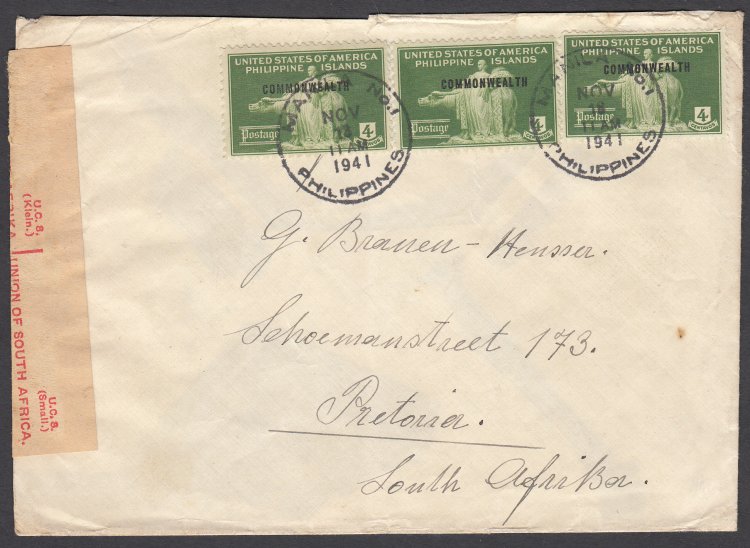 UNITED STATES OF AMERICA
PHILIPPINE ISLANDS
COMMONWEALTH
Postage
4
CENTAVOS
UNITED STATES OF AMERICA
PHILIPPINE ISLANDS
COMMONWEALTH
Postage
4
CENTAVOS
UNITED STATES OF AMERICA
PHILIPPINE ISLANDS
COMMONWEALTH
Postage
4
CENTAVOS
MANILA No.1
NOV
11 AM
1941
PHILIPPINES
MANILA No.1
NOV
11 AM
1941
PHILIPPINES
U.C. 8.
(Klein.)
UNION OF SOUTH AFRICA.
U.C. 8.
(Small.)
G.
Schoemanstreet 173.
Pretoria.
South Afrika.